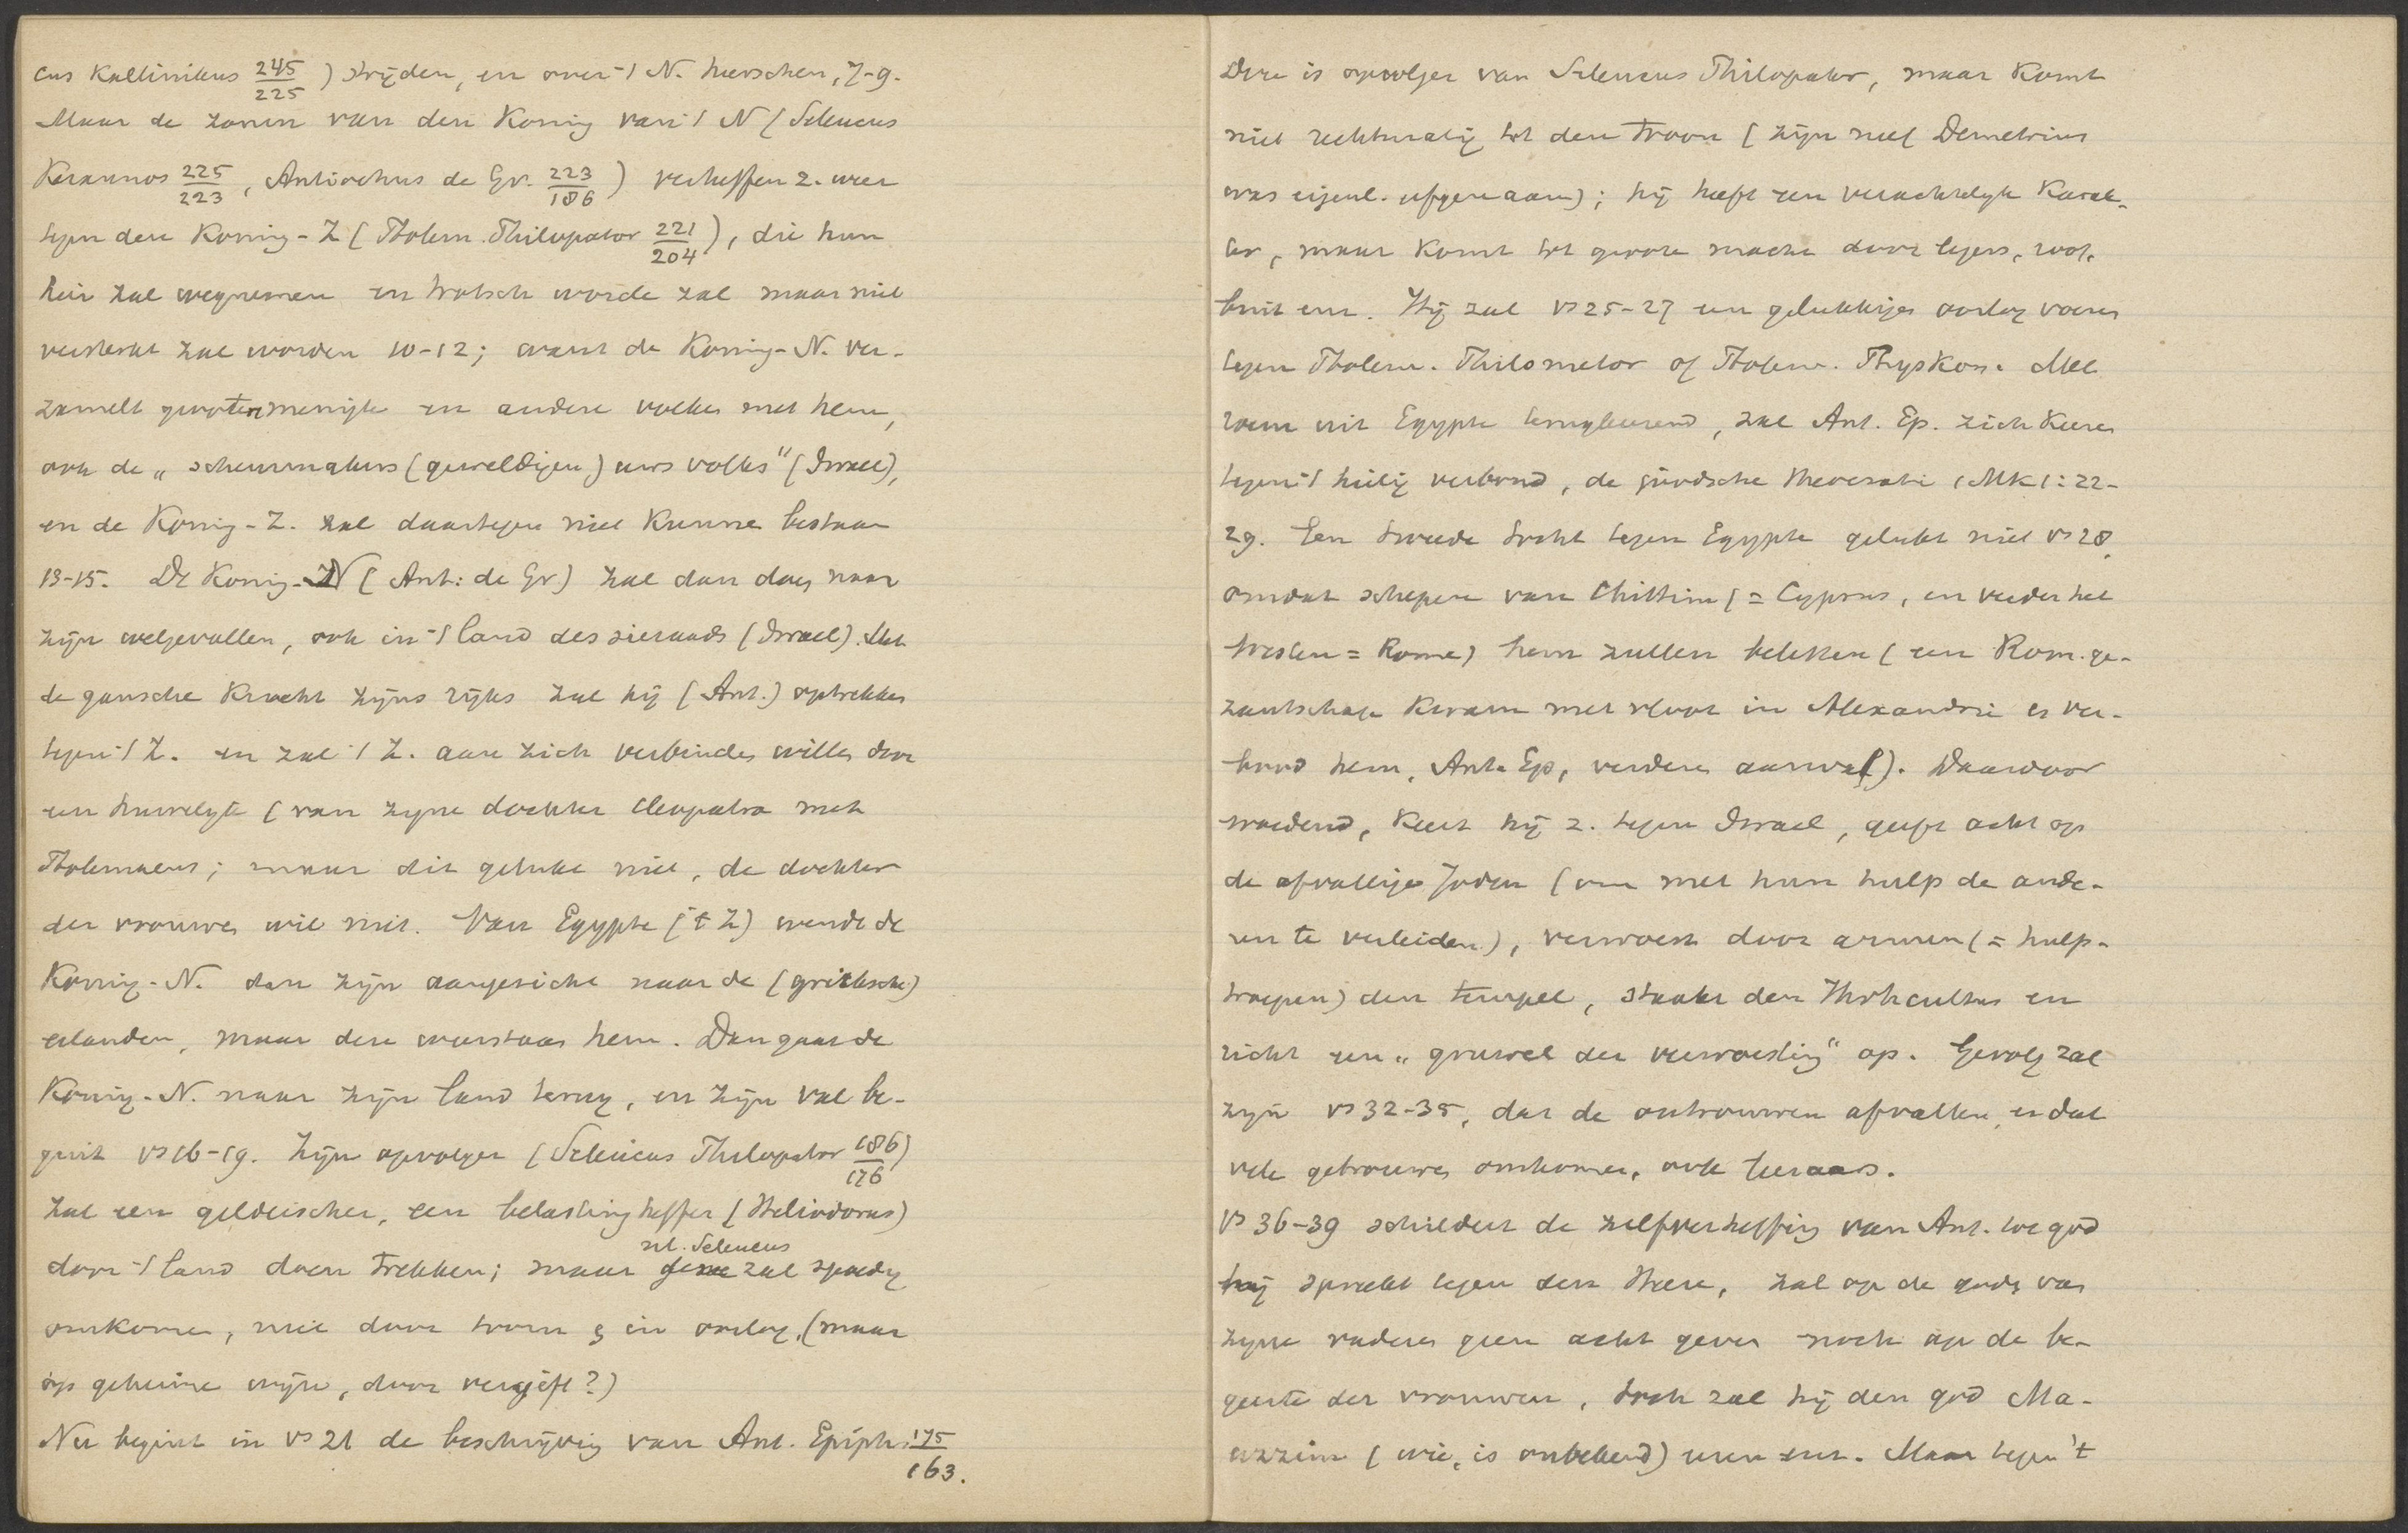 cus Kallinikus 245/225) strijden, en over 't N. heerschen, 7-9.
Maar de zonen van den Koning van 't N (Seleucus
Keraunos 225/223, Antiochus de Gr. 223/186) verheffen z. weer
tegen den Koning-Z (Ptolem. Philopator 221/204), die hun
heir zal wegnemen en trotsch worde zal maar niet
versterkt zal worden 10-12; want de Koning-N. ver-
zamelt grooter menigte en andere volken met hem,
ook de „scheurmakers (geweldigen) uws volks" (Israel),
en de Koning-Z. zal daartegen niet kunnen bestaan
13-15. De Koning-N (Ant: de Gr) zal dan doen naar
zijn welgevallen, ook in 't land des sieraads (Israel). Met
de gansche kracht zijns rijks zal hij (Ant.) optrekken
tegen 't Z. en zal 't Z. aan zich verbinden willen door
een huwelijk (van zijne dochter Cleopatra met
Ptolemaeus; maar dit gelukt niet, de dochter
der vrouwen wil niet. Van Egypte ('t Z) wendt de
Koning-N. dan zijn aangezicht naar de (grieksche)
eilanden, maar deze weerstaan hem. Dan gaat de
Koning-N. naar zijn land terug, en zijn val be-
gint vs 16-19. Zijn opvolger (Seleucus Philopator 186/176)
zal een geldeischer, een belastingheffer (Heliodorus)
door 't land doen trekken; maar nl. Seleucus zal spoedig
omkomen, niet door toorn of in oorlog, (maar
op geheime wijze, door vergift?)
Nu begint in vs 21 de beschrijving van Ant. Epiph. 175/163.
Deze is opvolger van Seleucus Philopator, maar komt
niet rechtmatig tot den troon (zijn neef Demetrius
was eigenl. erfgenaam); hij heeft een verachtelijk karak-
ter, maar komt tot groote macht door legers, roof,
buit enz. Hij zal vs 25-27 een gelukkigen oorlog voeren
tegen Ptolem. Philometor of Ptolem. Physkon. Met
roem uit Egypte terugkeerend, zal Ant. Ep. zich keeren
tegen 't heilig verbond, de joodsche theocratie 1 Mk 1:22-
29. Een tweede tocht tegen Egypte gelukt niet vs 28,
omdat schepen van Chittim (= Cyprus, en verder het
Westen = Rome) hem zullen beletten (een Rom. ge-
zantschap kwam met vloot in Alexandrië en ver-
bood hem, Ant. Ep, verderen aanval). Daardoor
woedend, keert hij z. tegen Israel, geeft acht op
de afvallige Joden (om met hun hulp de ande-
ren te verleiden), verwoest door armen (= hulp-
troepen) den tempel, staakt den Jhvhcultus en
richt een „gruwel der verwoesting" op. Gevolg zal
zijn vs 32-35, dat de ontrouwen afvallen, en dat
vele getrouwen omkomen, ook leeraars.
Vs 36-39 schildert de zelfverheffing van Ant. tot god
hij spreekt tegen den Heere, zal op de goden van
zijne vaderen geen acht geven noch op de be-
geerte der vrouwen, toch zal hij den god Ma-
uzzim (wie, is onbekend) eeren enz. Maar tegen 't